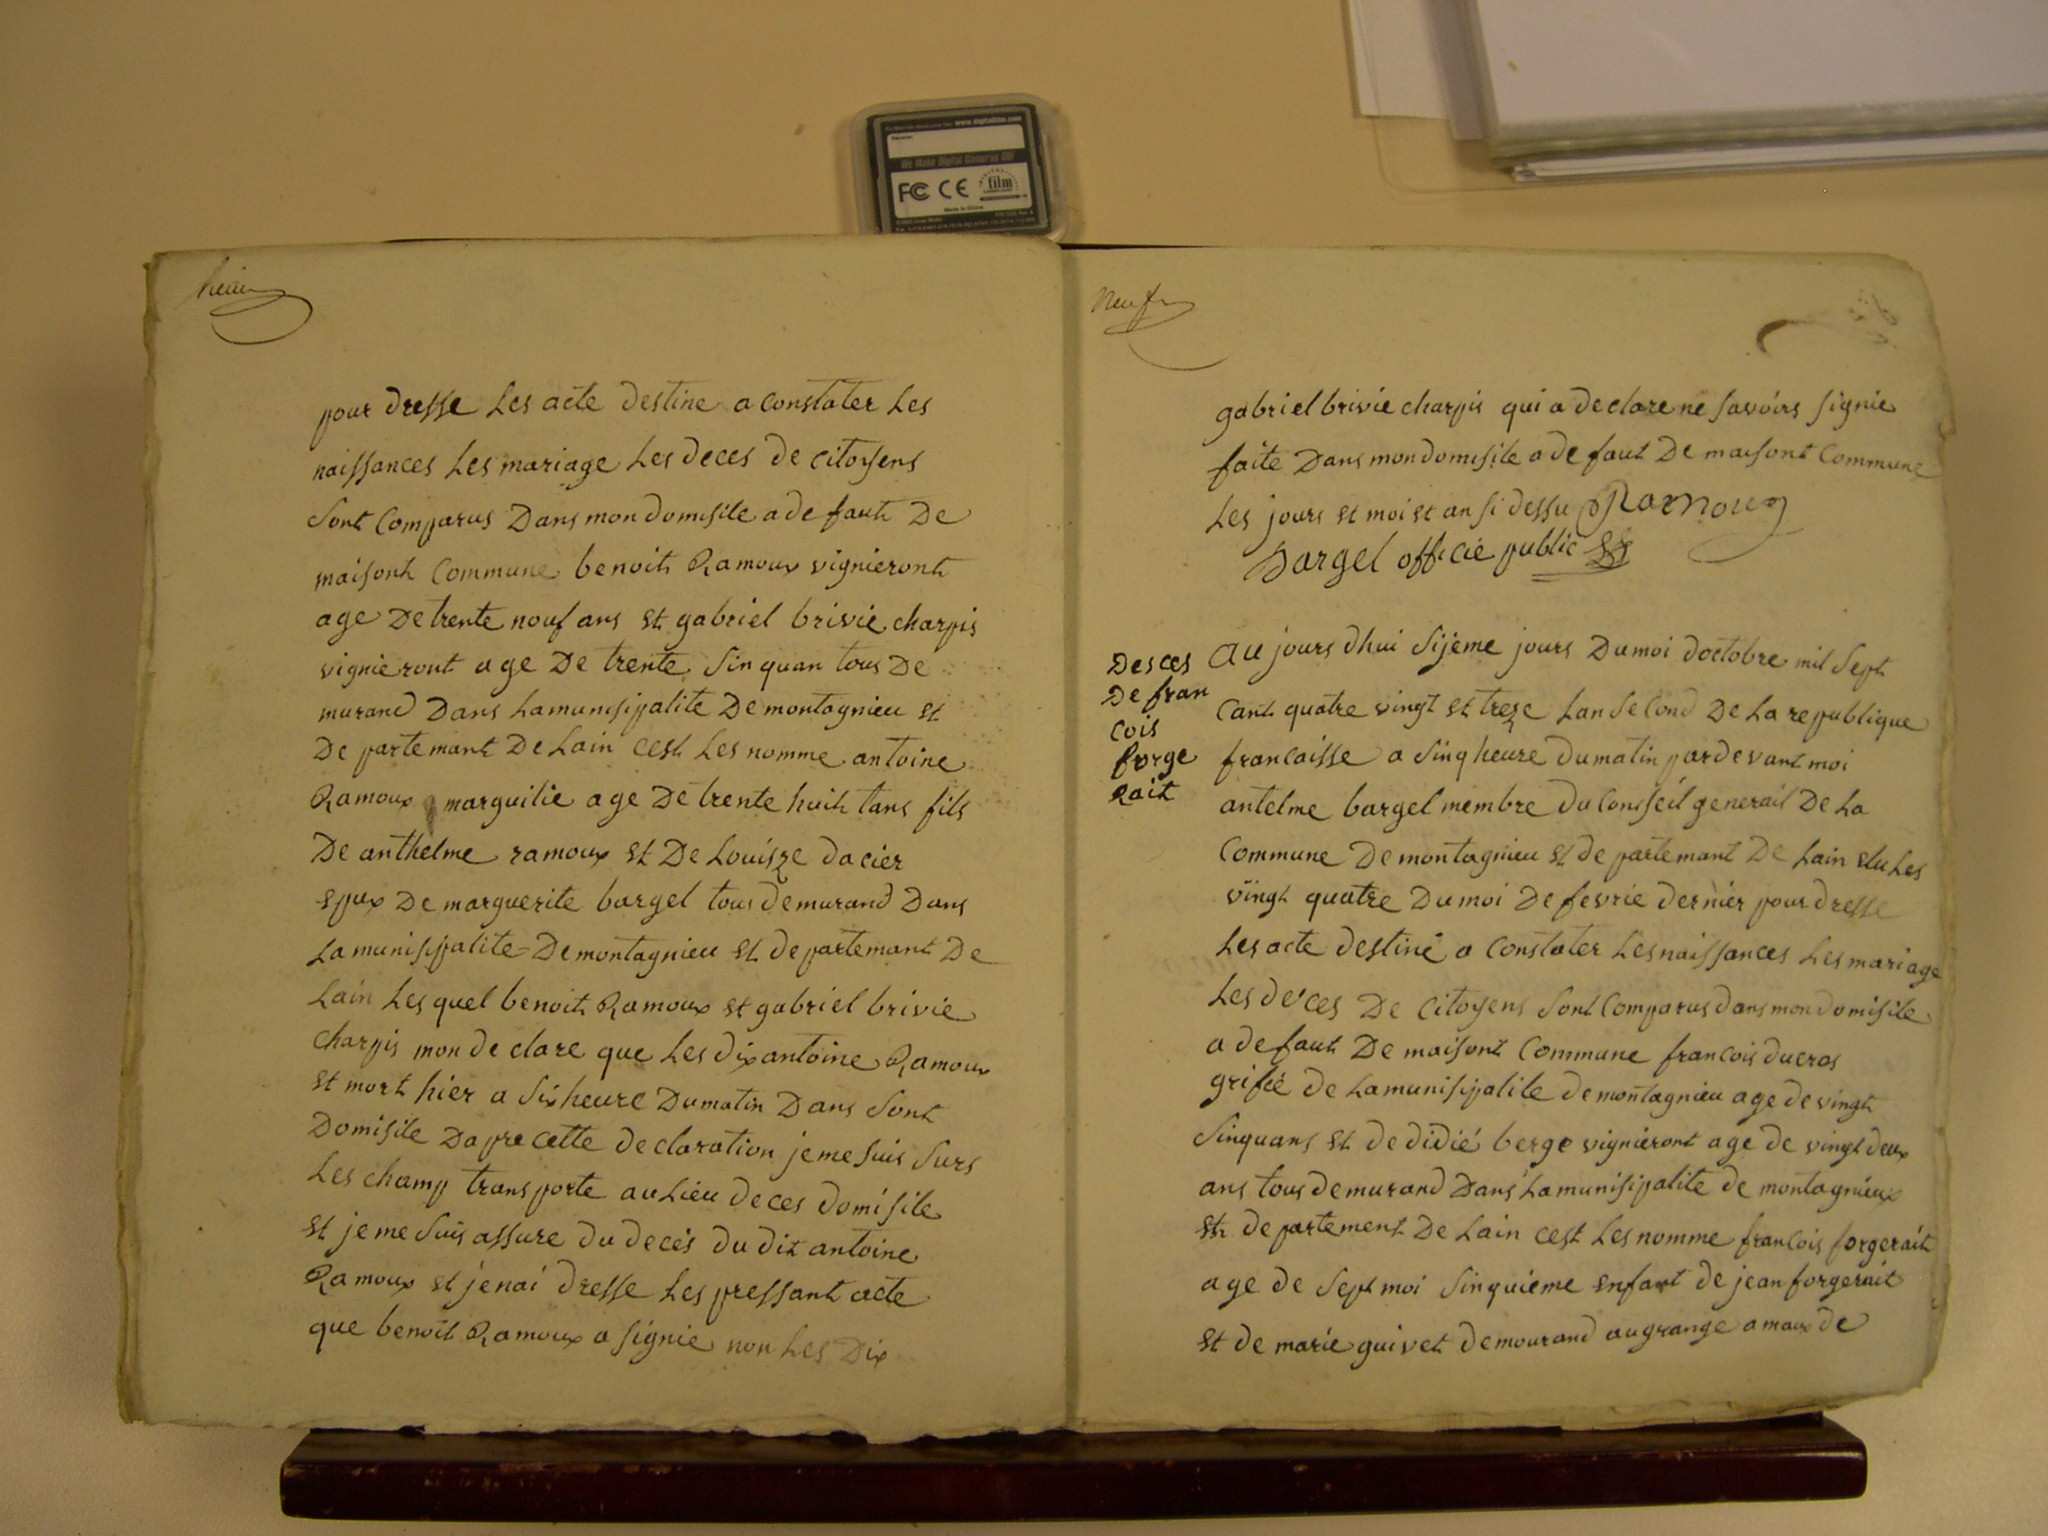 www.digitalfilm.com
We Make Digital Cameras GO!
FC CE film
Made in China
pour dresse Les acte destine a constater Les
naissances Les mariage Les deces de citoyens
sont comparus Dans mon domisile a defauth De
maisonh commune benoith Ramoux vignieronh
age De trente nouf ans et gabriel brivie charpis
vignieront age De trente sinquan tous De
murand Dans Lamunisipalite De montagnieu et
De partemant De Lain cest Les nomme antoine
Ramoux marguilie age De trente huih tans fils
De anthelme ramoux et De Louisze dacier
epux De marguerite bargel tous demurand Dans
La munisipalite De montagnieu et departemant De
Lain Les quel benoith Ramoux et gabriel brivie
charpis mon de clare que Les dix antoine Ramoux
et mort hier a six heure Dumatin Dans sont
Domisile Dapre cette declaration je me suis surs
Les champ transporte au Lieu de ces domisile
et je me suis assure du deces du dit antoine
Ramoux et jenai dresse Les pressant acte
que benoit Ramoux a signie non Les Dix
Neuf
gabriel brivie charpis qui a declare ne savoirs signie
faite Dans mon domisile a defaut De maisont commune
Les jours et moi et an si dessu Ramoux
Bargel officie public
Desces
De fran
cois
forge
Rait
au jours dhui sijeme jours Du moi doctobre mil sept
cant quatre vingt et treze Lan second De La republique
francaisse a sinq heure dumatin pardevant moi
antelme bargel membre du conseil generail De La
commune De montagnieu et departemant De Lain elu Les
vingt quatre Dumoi De fevrie dernier pour dresse
Les acte destiné a constater Les naissances Les mariage
Les deces De citoyens sont comparus dans mon domisile
a defaut De maisont commune francois ducros
grifié de La munisipalite de montagnieu age de vingt
sinquans et de didié berge vignieront age de vingt deux
ans tous demurand Dans La munisipalite de montagnieux
et departement De Lain cest Les nomme francois forgerait
age de sept moi sinquieme enfant de jean forgerait
et de marie guivet demourand au grange a maux de